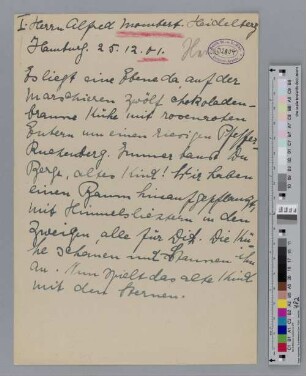 I. Herrn Alfred Mombert. Heidelberg
Hamburg. 25. 12. 01.
Es liegt eine Ebene da, auf der
marschieren zwölf chokoladen-
braune Kühe mit rosenroten
Eutern um einen riesigen Pfeffer-
Kuchenberg. Immer baust Du
Berge, altes Kind! Wir haben
einen Baum hinaufgepflanzt
mit Himmels in den
Zweigen alle für Dich. Die Kü-
he scheinen mit Staunen ihn
an. Nun spielt das alte Kind
mit den Sternen.